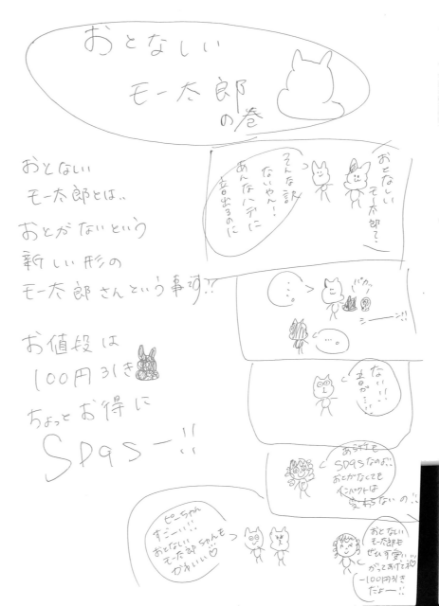 おとなしい
モー太郎
の巻
おとない
モー太郎とは..
おとがないという
新しい形の
モー太郎さんという事す!!
お値段は
100円引き
ちょっとお得に
SPas一!!
おとない
モー太郎?
そんな訳
ないやん!
あんなハデに
音出るのに
・・・
パカッ
シーーーン!!
・・・。
ない!!
音が・・!!
SPasなのよ..
おとがなくても
インパクトは
変わらないの!!
ピーちゃん
すごーい!!
おとない
モー太郎ちゃんも
かわいい♡
おとない
モー太郎も
ぜひす買い
がってあげてね
-100円引き
だよー!!